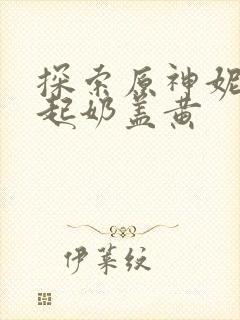 探索原神妮
起奶盖黄
伊莱纹